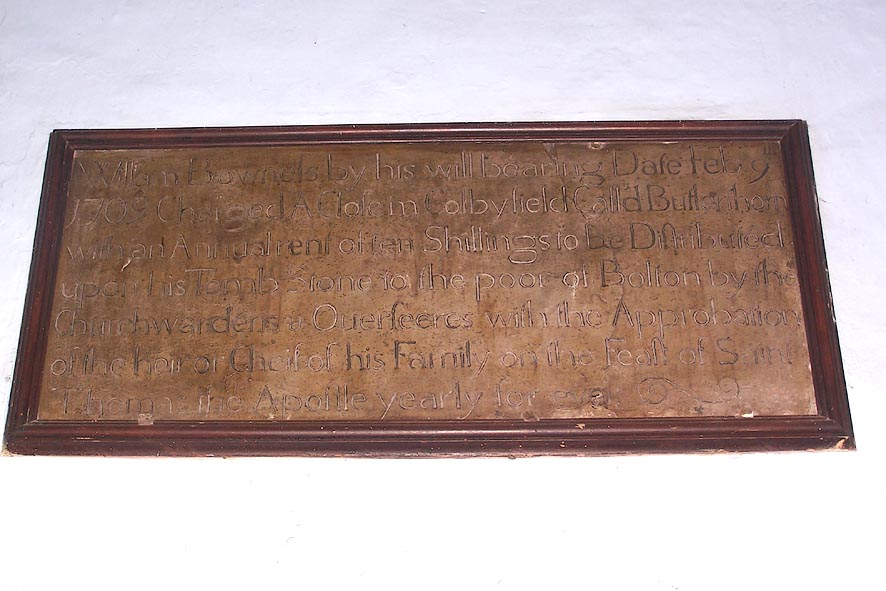 William Bownels by his will bearing Date Feb 9th
1709 Charged A Close in Colbyfield Call'd Butlerhom
with an Annual rent of ten Shillings to be Diſtributed
upon his Tomb Stone to the poor of Bolton by the
Churchwardens & Ouerſeeres with the Approbation
of the heir or Cheif of his Family on the Feaſt of Saint
Thomas the Apoſtle yearly for ever